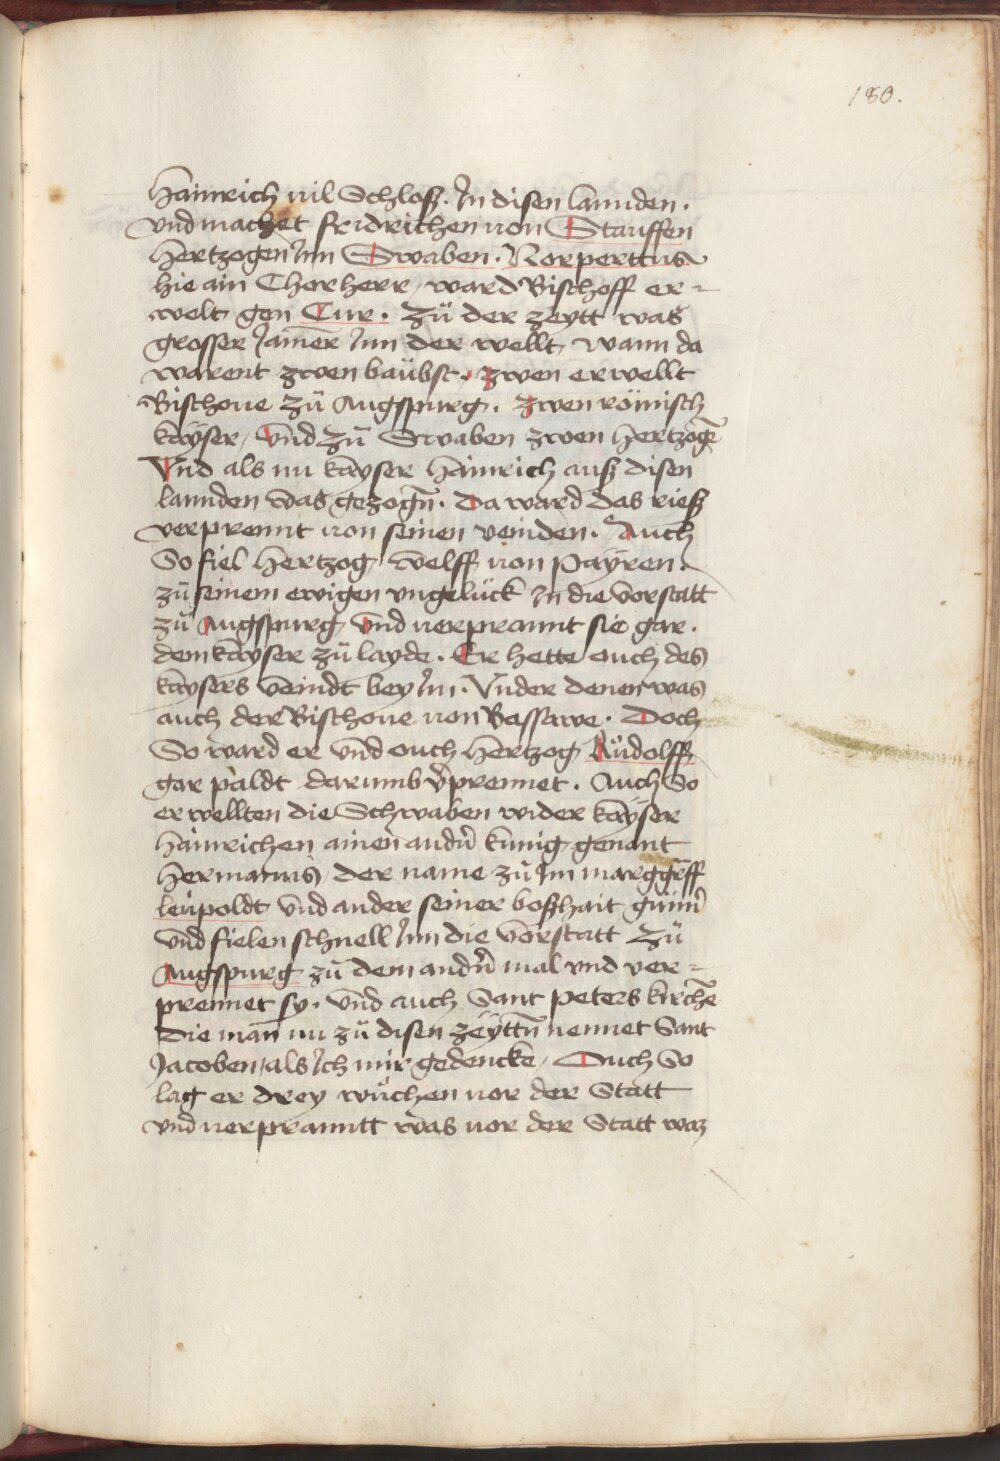 180.
Hainrich vil Schlosz. In disen lannden.
vnd machet fridrichen von Stauffen
Hertzogen Inn Swaben. Norperttus
hie ain Chorherr, ward Bischoff er=
welt gen Cur. Zů der zeytt was
grosser Jamer Inn der wellt, wann da
warent zwen baübst. zwen erwellt
Bischoue zů Augspurg. Zwen römisch
kayser, Vnd zů Swaben zwen hertzogē
Vnd als nu kayser Hainrich ausz disen
lannden was gezogn̄. Da ward das riesz
verprennt von seinen veinden. Auch
So fiel Hertzog welff von Payren.
zů seinem ewigen vngelück In die vorstatt
zů Augspurg Vnd verprannt sie gar.
dem kayser zů layde. Er hette ouch des
kaysers veindt bey Im. Vnder denen was
auch der Bischoue von Bassawe. Doch
So ward er vnd ouch Hertzog Růdolff
gar paldt darumb v̄prennet. Auch So
erwellten die Schwaben wider kayser
Hainrichen ainen andn̄ kunig genant
Hermanus, der name zů Im marggrāff
leupoldt vnd ander seiner boszhait
vnd fielen schnell Inn die vorstatt zů
Augspurg zů dem andn̄ mal vnd ver=
prennet sy. vnd auch Sant peters kirchē
die man nu zů disen zeyttn̄ nennet Sant
Jacoben, als Ich mir gedencke, Ouch So
lag er drey wůchen vor der Statt
vnd verpranntt was vor der Statt waz